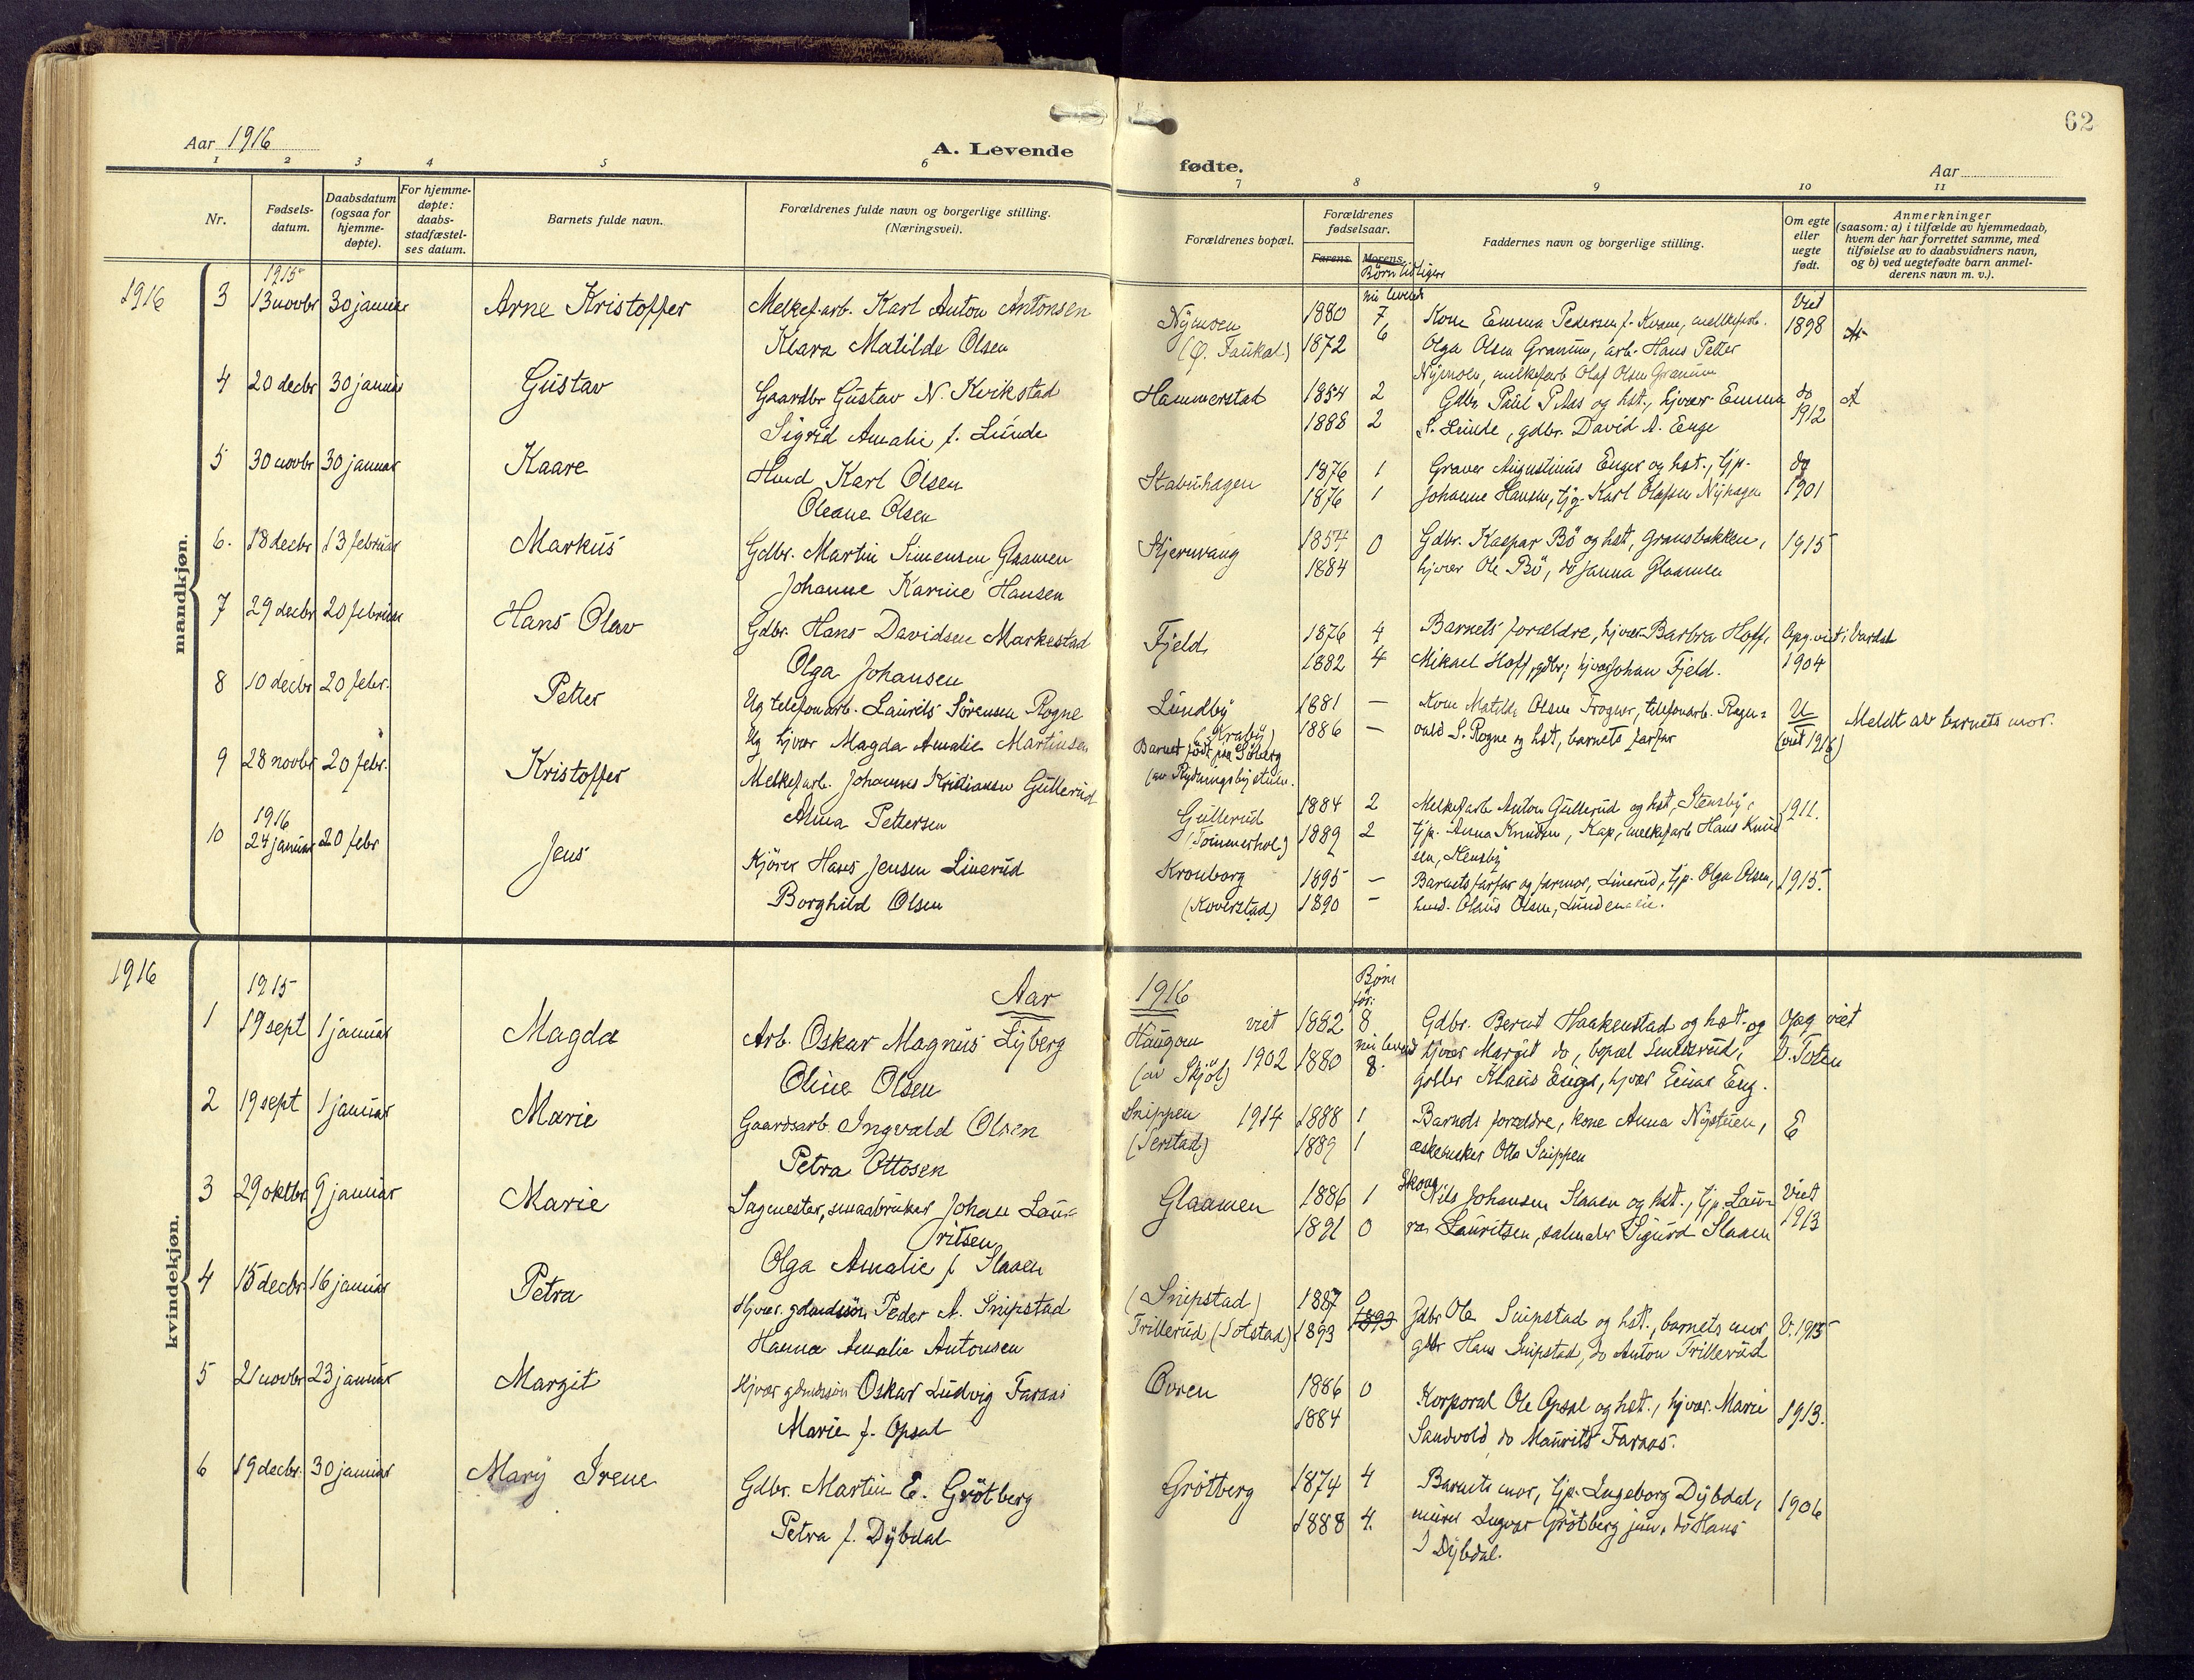 62
Aar 1916
A. Levende
fødte.
Aar
1 2 3 4 5 6 7 8 9 10 11
Nr.
Fødsels-
datum.
Daabsdatum
(ogsaa for
hjemme-
døpte).
For hjemme-
døpte:
daabs-
stadfæstel-
ses datum.
Barnets fulde navn.
Forældrenes fulde navn og borgerlige stilling.
(Næringsvei).
Forældrenes bopæl.
Forældrenes
fødselsaar.
Farens. Morens.
Børn tidligere
nu levende
Faddernes navn og borgerlige stilling.
Om egte
eller
uegte
født.
Anmerkninger
(saasom: a) i tilfælde av hjemmedaab,
hvem der har forrettet samme, med
tilføielse av to daabsvidners navn,
og b) ved uegtefødte barn anmel-
derens navn m. v.).
mandkjøn.
1916
3 1915 13 novbr 30 januar Arne Kristoffer
Melkef.arb. Karl Anton Antonsen
Klara Matilde Olsen
Nymoen
(Ø. Faukal.)
1880 7
1872 6
Kone Emma Pedersen f. Kvam, melkefarb.
Olga Olsen Granum, arb. Hans Petter
Nymoen, melkefarb Olaf Olsen Granum
Viet
1898
4 20 decbr 30 januar Gustav
Gaardbr Gustav N. Kvikstad
Sigrid Amalie f. Lunde
Hammerstad
1854 2
1888 2
Gdbr. Paul P. Aas og hst., hjvær Emma
S. Lunde, gdbr. David A. Enge
do
1912
A
5 30 novbr 30 januar Kaare
Hmd Karl Olsen
Oleane Olsen
Stabuhagen
1876 1
1876 1
Graver Augustinus Enger og hst., tjp.
Johanne Hansen, tjg. Karl Olafsen Nyhagen
do
1901
6. 18 decbr 13 februar Markus
Gdbr. Martin Simensen Glaamen
Johanne Karine Hansen
Stjernvang
1854 0
1884
Gdbr. Kaspar Bö og hst, Gransbakken,
hjvær Ole Bö, do Janna Glaamen
1915
7 29 decbr 20 februar Hans Olav
Gdbr. Hans Davidsen Markestad
Olga Johansen
Fjeld
1876 4
1882 4
Barnets forældre, hjvær Barbra Hoff,
Mikael Hoff, gdbr, hjvær Johan Fjeld.
Opg. viet i Vardal
1904
8 10 decbr 20 febr. Petter
Ug telefonarb. Laurits Sörensen Rogne
Ug hjvær Magda Amalie Martinsen
Lundby
(Kraby)
Barnet født paa Solberg
1881 —
1886 —
Kone Matilde Olsen Frogner, telefonarb. Ragn-
vald S. Rogne og hst, barnets farfar
U
(viet 1916)
Meldt av barnets mor.
9 28 novbr 20 febr. Kristoffer
Melkefarb. Johannes Kristiansen Gullerud
Alma Pettersen
Gullerud
(Tömmerhol)
1884 2
1889 2
Melkefarb Anton Gullerud og hst, Stensby,
tjp. Anna Knudsen, Kap, melkefarb Hans Knud
sen, Stensby
1911.
10 1916 24 januar 20 febr Jens
Kjörer Hans Jensen Linerud
Borghild Olsen
Kronborg
(Koverstad)
1895 —
1890 —
Barnets farfar og farmor, Linerud, tjp. Olga Olsen,
hmd. Olaus Olsen,
1915.
kvindekjøn.
1916
Aar 1916
Børn
før:
nu levend
1 1915 19 sept 1 januar Magda
Arb. Oskar Magnus Lyberg
Oline Olsen
Haugom
(av Skjöl)
viet
1902
1882 8
1880 8.
Gdbr. Bernt Haakenstad og hst. og
hjvær Margit do, bopæl Smedsrud,
gdbr Klaus Enge, hjvær Einar Eng.
Opg viet
V. Toten
2 19 sept 1 januar Marie
Gaardsarb. Ingvald Olsen
Petra Ottosen
Snippen
(Serstad)
1914
1888 1
1889 1
Barnets forældre, kone Anna Nystuen,
æskemaker Otto Snippen
E
3 29 oktbr 9 januar Marie
Sagmester, smaabruker Johan Lau-
ritsen
Olga Amalie f Slaaen
Glaamen
1886 1
1891 0
Skom Nils Johansen Slaaen og hst., tjp. Lau-
ra Lauritsen, salmaker Sigurd Slaaen
Viet
1913
4 15 decbr. 16 januar Petra
Hjvær. gdmdssön Peder A. Snipstad
Hanna Amalie Antonsen
(Snipstad)
Trillerud (Sotstad)
1887 0
1893 1893
Gdbr Ole Snipstad og hst., barnets mor
gdbr Hans Snipstad, do Anton Trillerud
V. 1915
5 21 novbr 23 januar Margit
Hjvær gdmdssön Oskar Ludvig Faraas
Marie f. Opsal
Ovren
1886 0
1884
Korporal Ole Opsal og hst., hjvær. Marie
Sandvold, do Maurits Faraas.
1913.
6 19 decbr. 30 januar Mary Irene
Gdbr. Martin E. Grötberg
Petra f. Dybdal
Grötberg
1874 4
1888 4.
Barnets mor, tjp. Ingeborg Dybdal,
murer Ingvar Grötberg jun., do Hans
J Dybdal.
1906